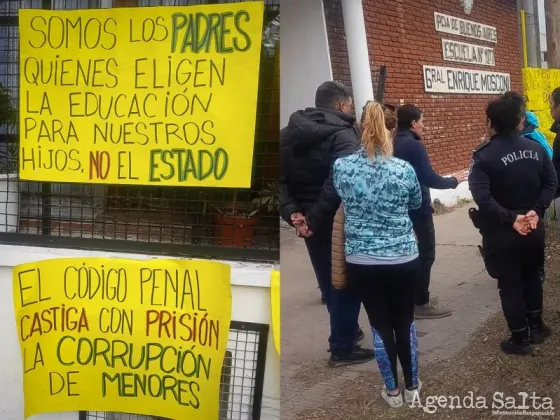 SOMOS LOS PADRES
QUIENES ELIGEN
LA EDUCACIÓN
PARA NUESTROS
HIJOS, NO EL ESTADO
EL CÓDIGO PENAL
CASTIGA CON PRISIÓN
LA CORRUPCIÓN
DE MENORES
PCIA DE BUENOS AIRES
ESCUELA Nº 107
GRAL ENRIQUE MOSCONI
POLICIA
Agenda Salta
Información Responsable